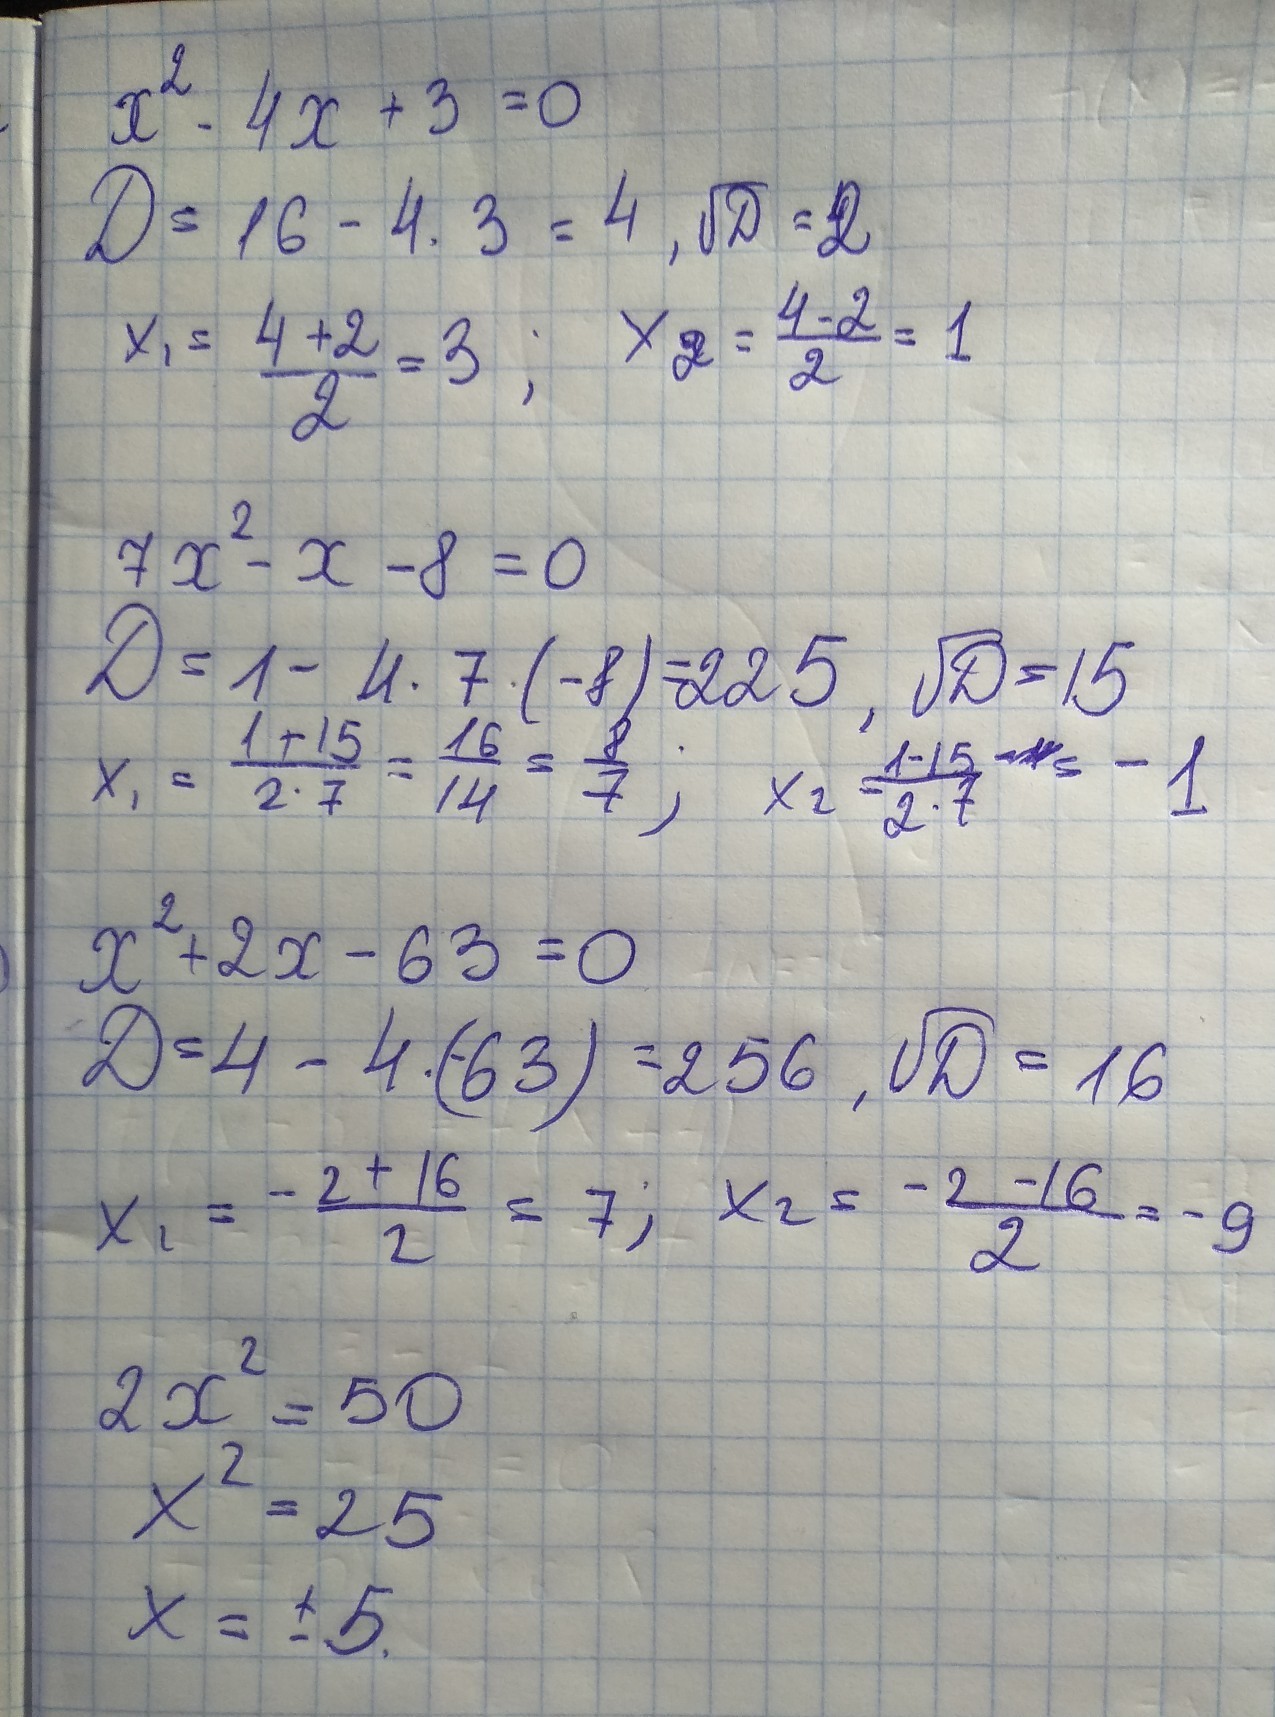 x² - 4x + 3 = 0
D = 16 - 4 · 3 = 4, √D = 2
x₁ = (4+2)/2 = 3 ; x₂ = (4-2)/2 = 1
7x² - x - 8 = 0
D = 1 - 4 · 7 · (-8) = 225, √D = 15
x₁ = (1+15)/(2·7) = 16/14 = 8/7 ; x₂ = (1-15)/(2·7) = -1
x² + 2x - 63 = 0
D = 4 - 4 · (-63) = 256, √D = 16
x₁ = (-2+16)/2 = 7 ; x₂ = (-2-16)/2 = -9
2x² = 50
x² = 25
x = ±5.